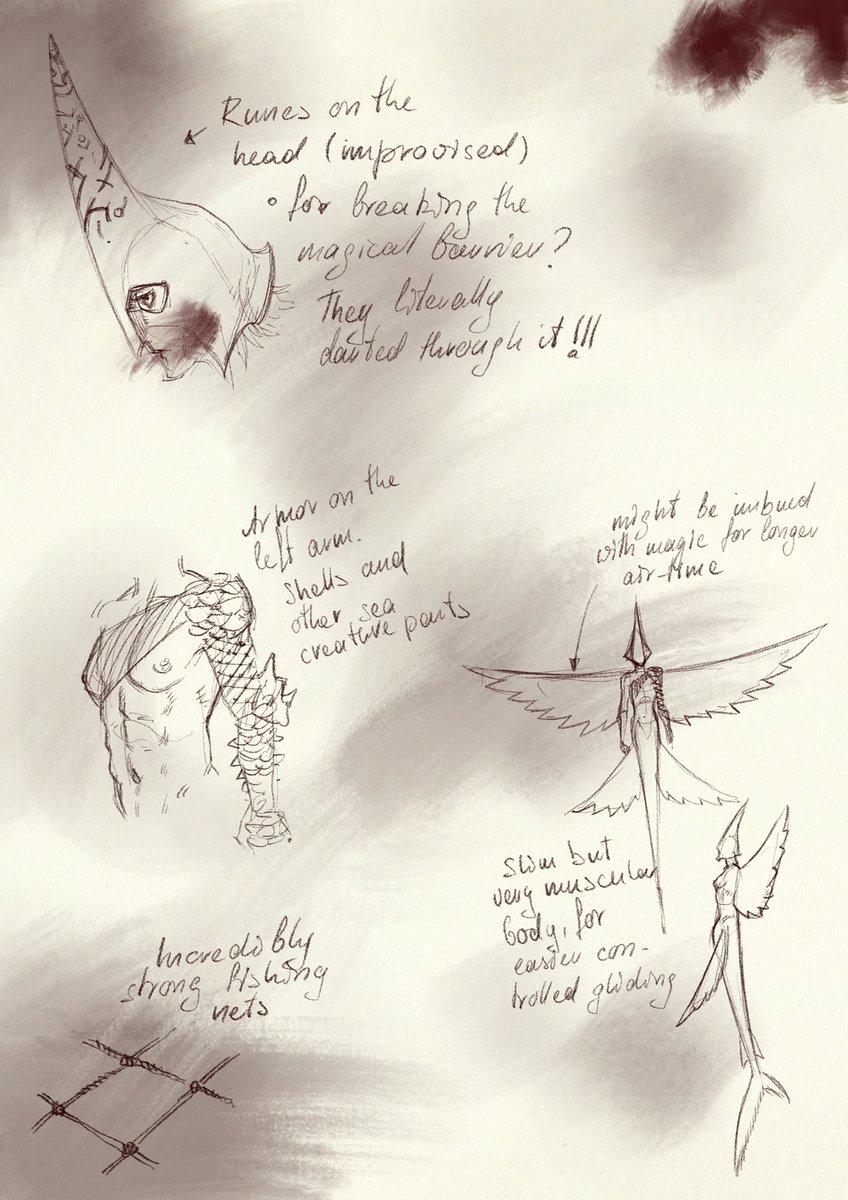 Runes on the
head (improvised)
• for breaking the
magical barrier?
They literally
darted through it!!!
Armor on the
left arm.
Shells and
other sea
creature parts
might be imbued
with magic for longer
air-time
slim but
very muscular
body, for
easier con-
trolled gliding
Incredibly
strong fishing
nets